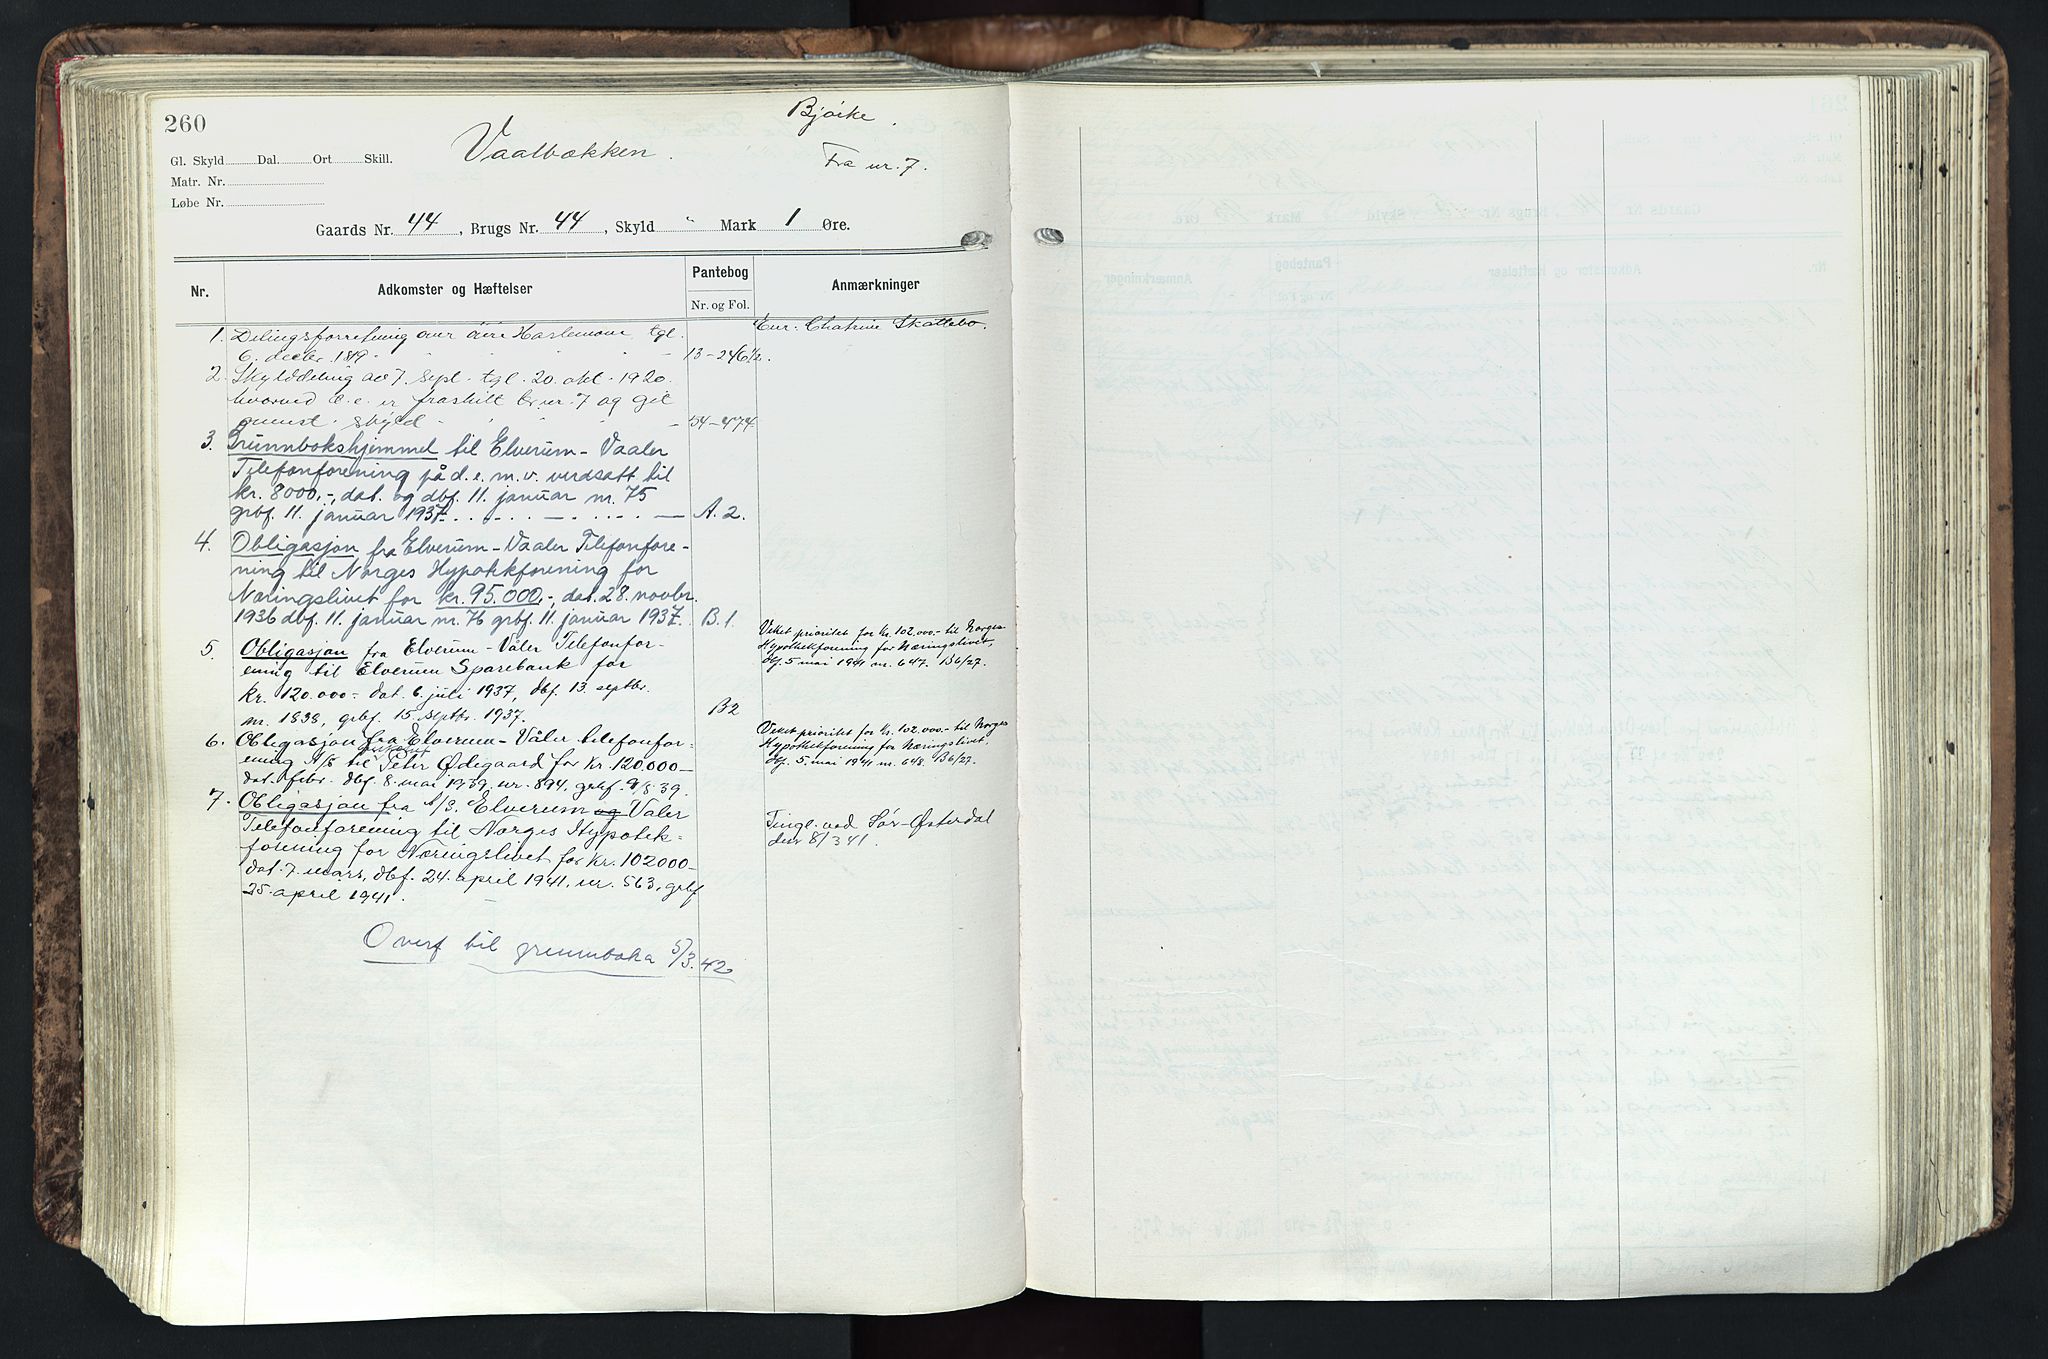 260
Bjørke.
Vaalbækken.
Fra nr. 7.
Gl. Skyld Dal. Ort Skill.
Matr. Nr.
Løbe Nr.
Gaards Nr. 44, Brugs Nr. 44, Skyld " Mark 1 Øre.
Nr.
Adkomster og Hæftelser
Pantebog
Nr. og Fol.
Anmærkninger
1. Delingsforretning over tgl.
6. decbr. 1819 13-246 1/2.
Enr. Chatrine Skattebo.
2. Skylddeling av 7. sept. tgl. 20. okt. 1920.
hvorved d. e. er fraskilt br. nr. 7 og git
skyld 54-474
3. Grunnbokshjemmel til Elverum-Vaaler
Telefonforening på d. e. m. v. verdsatt til
kr. 8000,-, dat. og dbf. 11. januar nr. 75
grbf. 11. januar 1937. A. 2.
4. Obligasjon fra Elverum-Vaaler Telefonfore-
ning til Norges Hypotekforening for
Næringslivet for kr. 95.000,-, dat. 28. novbr.
1936 dbf. 11. januar nr. 76 grbf. 11. januar 1937. B. 1.
5. Obligasjon fra Elverum-Våler Telefonfor-
ening til Elverum Sparebank for
kr. 120.000.- dat. 6. juli 1937, dbf. 13. septbr.
nr. 1838, grbf. 15. septbr. 1937. B2
Veket prioritet for kr. 102.000.- til Norges
Hypothekforening for Næringslivet,
dbf. 5. mai 1941 nr. 647. B6/27.
6. Obligasjon fra Elverum-Våler telefonfor-
ening A/S til Peter Ødegaard for kr. 120.000-
dat. febr. dbf. 8. mai 1939, nr. 894, grbf. 9/5 39.
Veket prioritet for kr. 102.000.- til Norges
Hypothekforening for Næringslivet,
dbf. 5. mai 1941 nr. 648 B6/27.
7. Obligasjon fra A/S. Elverum og Våler
Telefonforening til Norges Hypotek-
forening for Næringslivet for kr. 102000-
dat. 7. mars, dbf. 24. april 1941. nr. 563, grbf
25. april 1941.
Tingl. ved Sør-Østerdal
8/3 41.
Overf til grunnboka 5/3.42